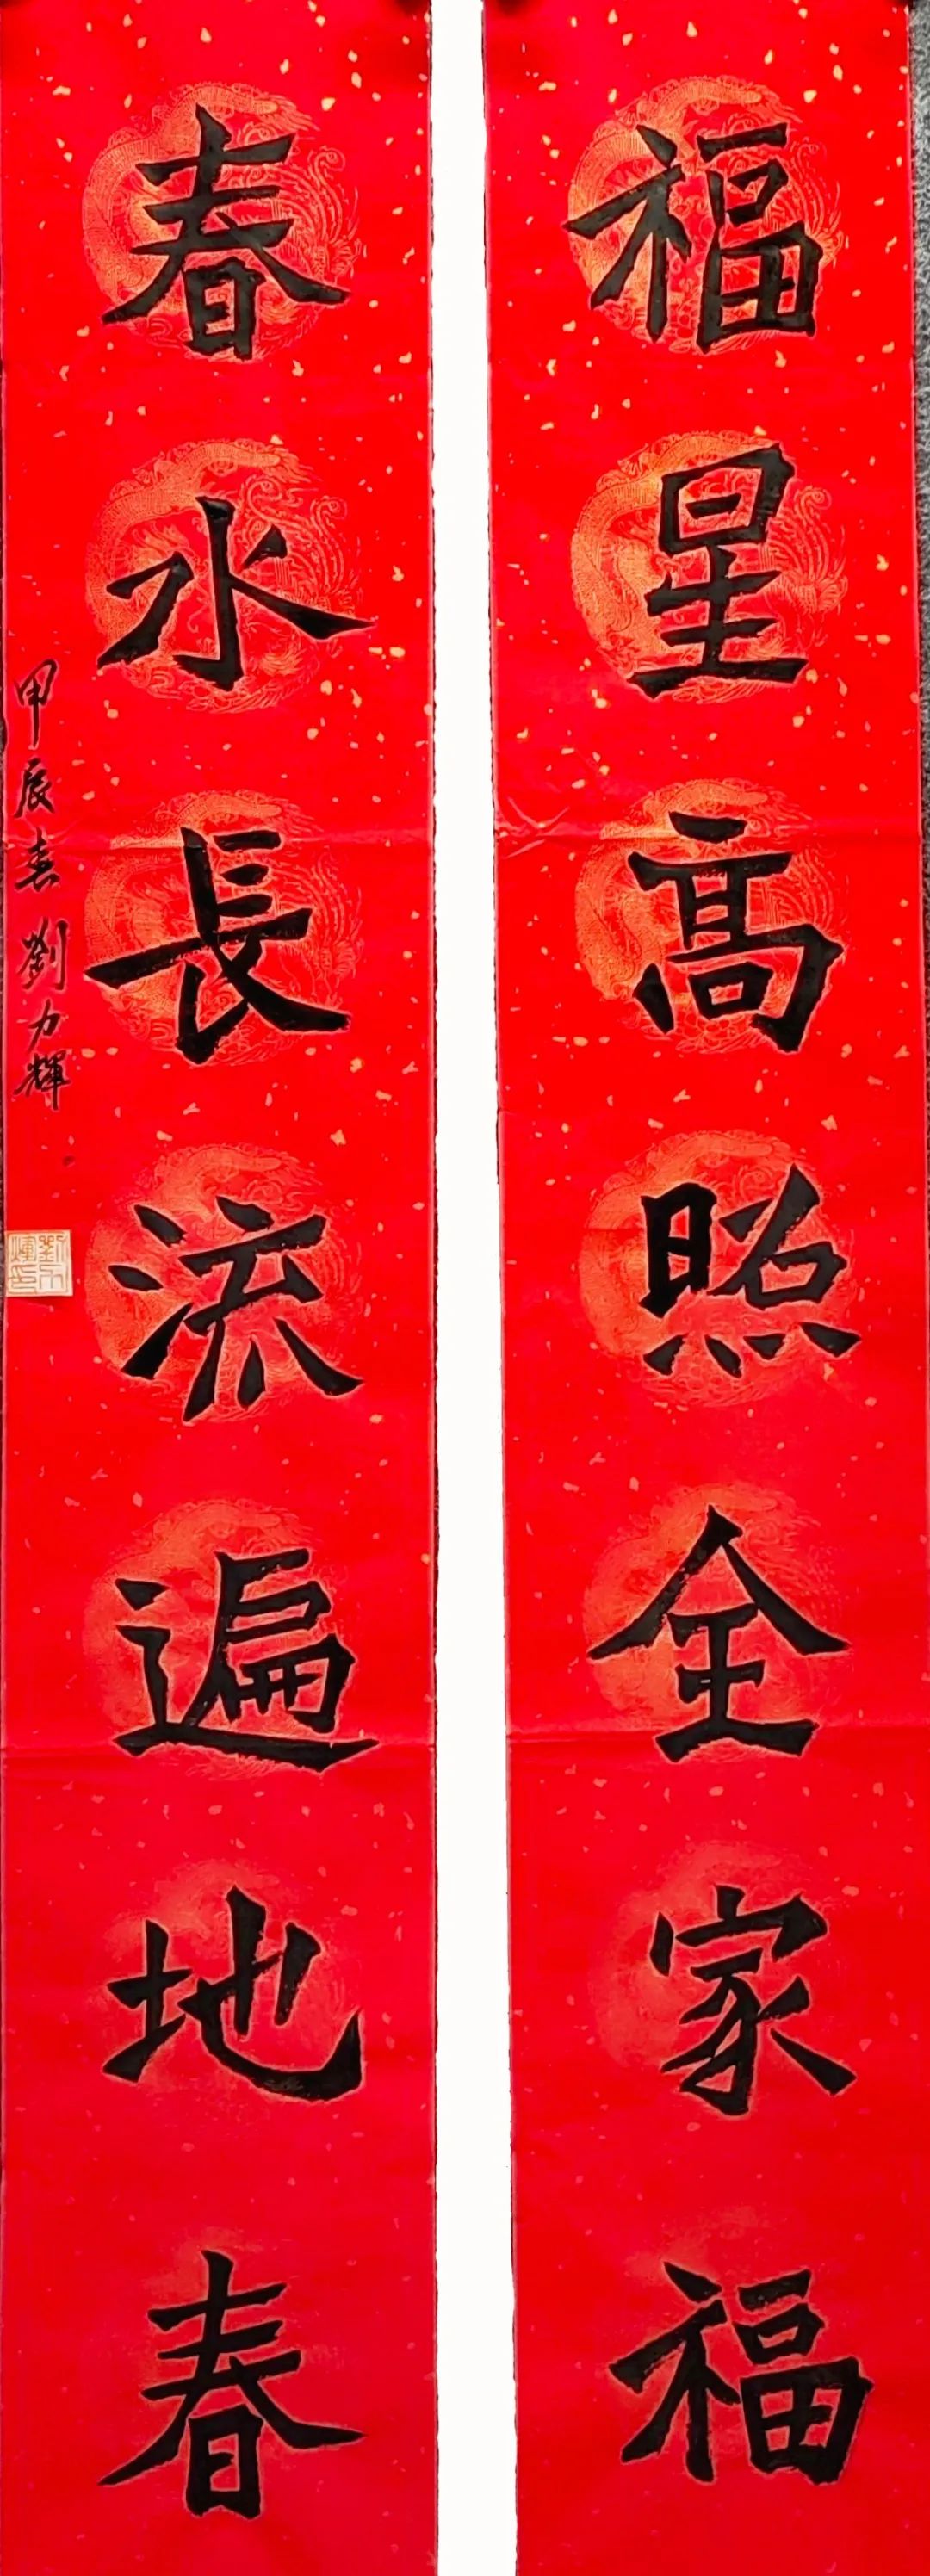 福星高照全家福
春水長流遍地春
甲辰春 劉力輝